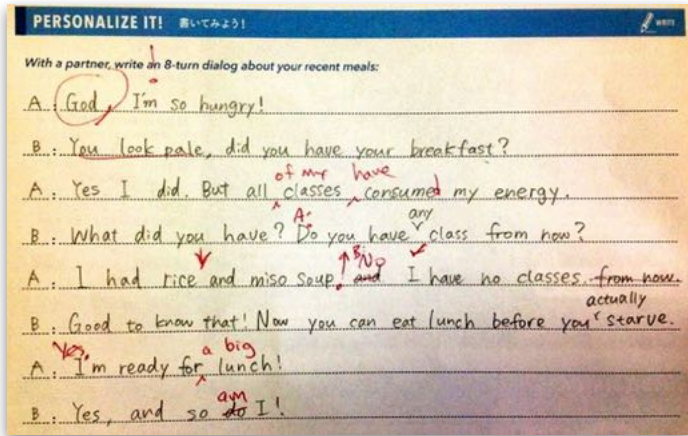 PERSONALIZE IT! 書いてみよう! WRITE
With a partner, write an 8-turn dialog about your recent meals:
!
A: God, I'm so hungry!
B: You look pale, did you have your breakfast?
of my have
A: Yes I did. But all classes consumed my energy.
A: any
B: What did you have? Do you have class from now?
B: No
A: I had rice and miso soup. and I have no classes. from now.
actually
B: Good to know that! Now you can eat lunch before you starve.
Yes, a big
A: I'm ready for lunch!
am
B: Yes, and so do I!